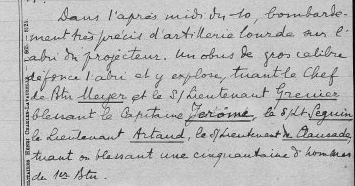 Dans l'après midi du 10, bombarde-
ment très précis d'artillerie lourde sur l'
abri du projecteur. Un obus de gros calibre
défonce l'abri et y explose, tuant le Chef
de Btn Meyer et le S/Lieutenant Grenier
blessant le Capitaine Jérôme, le S/Lt Seguin
le Lieutenant Artaud, le S/Lieutenant de Clausade,
tuant ou blessant une cinquantaine d'hommes
du 1er Btn.